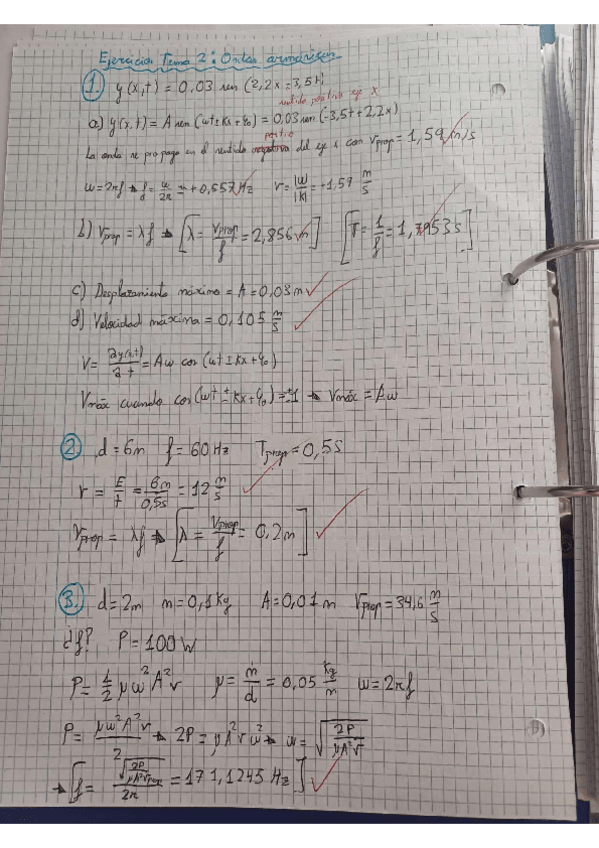 Ejercicios Tema 2: Ondas armónicas
1. y(x,t) = 0,03 sen (2,2x - 3,5t)
sentido positivo eje x
a) y(x,t) = A sen (ωt ± kx + φ₀) = 0,03 sen (-3,5t + 2,2x)
positivo
La onda se propaga en el sentido del eje x con Vprop = 1,59 m/s
ω = 2πf → f = ω/2π = +0,557 Hz v = |ω|/|k| = +1,59 m/s
b) Vprop = λf → [λ = Vprop/f = 2,856 m] [T = 1/f = 1,7953 s]
c) Desplazamiento máximo = A = 0,03 m
d) Velocidad máxima = 0,105 m/s
V = ∂y(x,t)/∂t = Aω cos (ωt ± kx + φ₀)
Vmáx cuando cos(ωt ± kx + φ₀) = ±1 → Vmáx = Aω
2. d = 6m f = 60 Hz Tprop = 0,5 s
v = E/t = 6m/0,5s = 12 m/s
Vprop = λf → [λ = Vprop/f = 0,2 m]
3. d = 2m m = 0,1 Kg A = 0,01 m Vprop = 34,6 m/s
¿f? P = 100 W
P = 1/2 μω²A²v μ = m/d = 0,05 Kg/m ω = 2πf
P = μω²A²v/2 → 2P = μA²vω² → ω = √(2P/μA²v)
→ [f = √(2P/μA²Vprop)/2π = 171,1245 Hz]